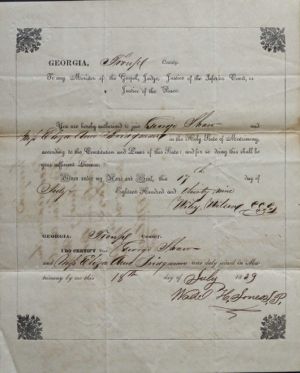 GEORGIA, Troup County.
To any Minister of the Gospel, Judge, Justice of the Inferior Court, or
Justice of the Peace.
You are hereby authorized to join George Shaw and
Miss Eliza Ann in the Holy State of Matrimony,
according to the Constitution and Laws of this State; and for so doing this shall be
your sufficient License.
Given under my Hand and Seal, this 17th day of
July Eighteen Hundred and thirty nine
Wiley
GEORGIA, Troup County.
I DO CERTIFY that George Shaw
and Miss Eliza Ann were duly joined in Ma-
trimony by me this 18th day of July 1839
Wade H. Jones J.P.